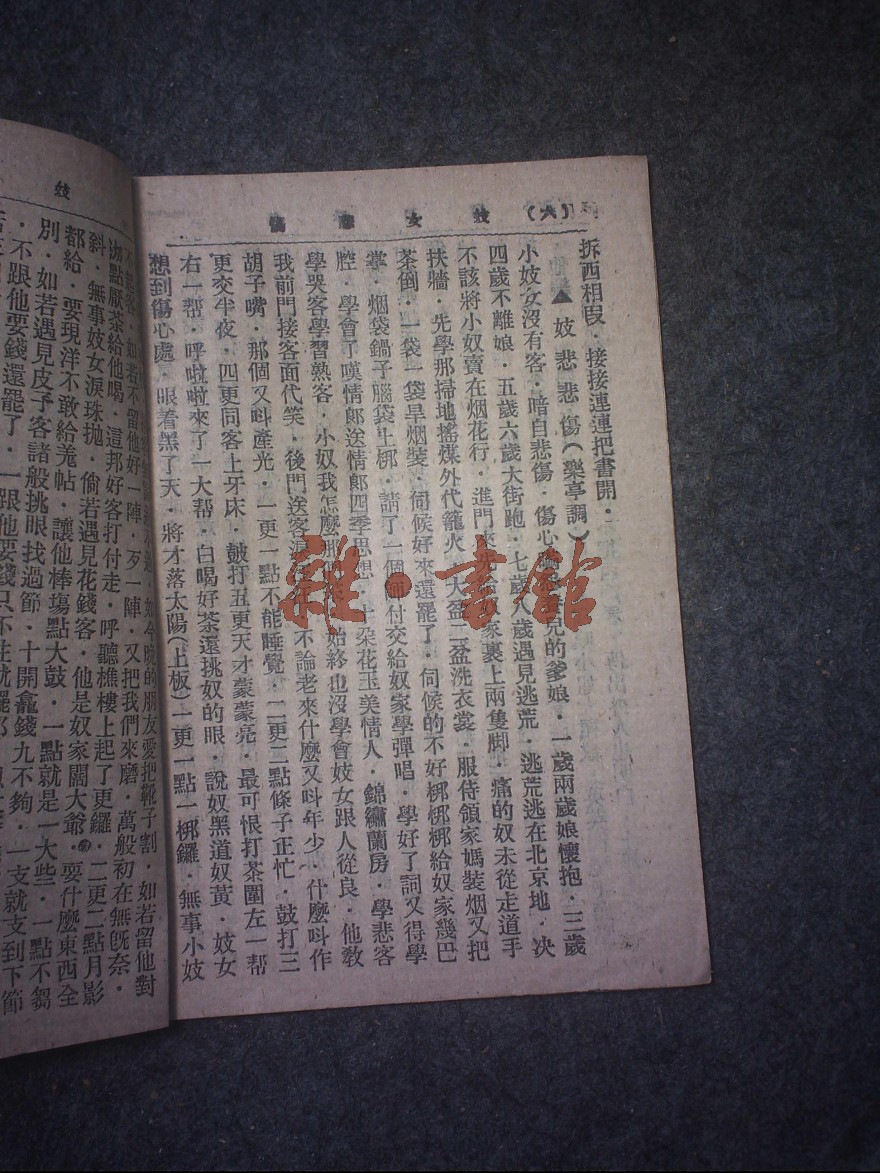 妓女悲傷（六）
拆西相段．接接連連把書開．
▲妓悲悲傷（樂亭調）
小妓女沒有客．暗自悲傷．傷心的爹娘．一歲兩歲娘懷抱．三歲
四歲不離娘．五歲六歲大街跑．七歲八歲遇見逃荒．逃荒逃在北京地．决
不該將小奴賣在烟花行．進門來先給奴家裹上兩隻脚．痛的奴未從走道手
扶牆．先學那掃地搖煤外代籠火．大盆二盆洗衣裳．服侍領家媽裝烟又把
茶倒．一袋一袋旱烟裝．伺候好來還罷了．伺候的不好梆梆梆給奴家幾巴
掌．烟袋鍋子腦袋上梆．請了一個師付交給奴家學彈唱．學好了詞又得學
腔．學會了嘆情郎送情郎四季思想．十朵花玉美情人．錦繡蘭房．學悲客
學哭客學習熟客．小奴我怎麼始終也沒學會妓女跟人從良．他教
我前門接客面代笑．後門送客淚不論老來什麼又呌年少．什麼呌作
胡子嘴．那個又呌產光．一更一點不能睡覺．二更二點條子正忙．鼓打三
更交半夜．四更同客上牙床．鼓打五更天才蒙蒙亮．最可恨打茶圍左一帮
右一帮．呼啦啦來了一大帮．白喝好茶還挑奴的眼．說奴黑道奴黃．妓女
想到傷心處．眼看黑了天．將才落太陽（上板）一更一點一梆鑼．無事小妓
妓
如今晚的朋友愛把靴子割．如若留他對
不留他好一陣．歹一陣．又把我們來磨．萬般初在無旣奈．
沏點厭茶給他喝．這邦好客打付走．呼聽樵樓上起了更鑼．二更二點月影
斜．無事妓女淚珠拋．倘若遇見花錢客．他是奴家闊大爺．要什麼東西全
都給．要現洋不敢給羗帖．讓他棒塲點大鼓．一點就是一大些．一點不芻
別．如若遇見皮子客諸般挑眼找過節．十開龕錢九不夠．一支就支到下節
．不跟他要錢還罷了．一跟他要錢只不
雜·書館